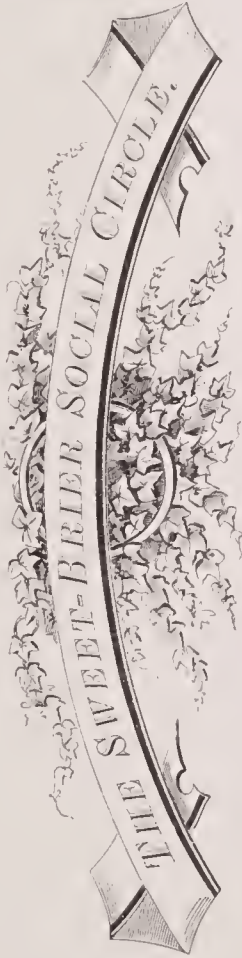 THE SWEET-BRIER SOCIAL CIRCLE.